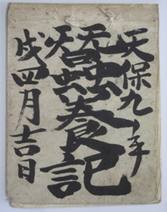 天保九年
蚕養記
戌四月吉日